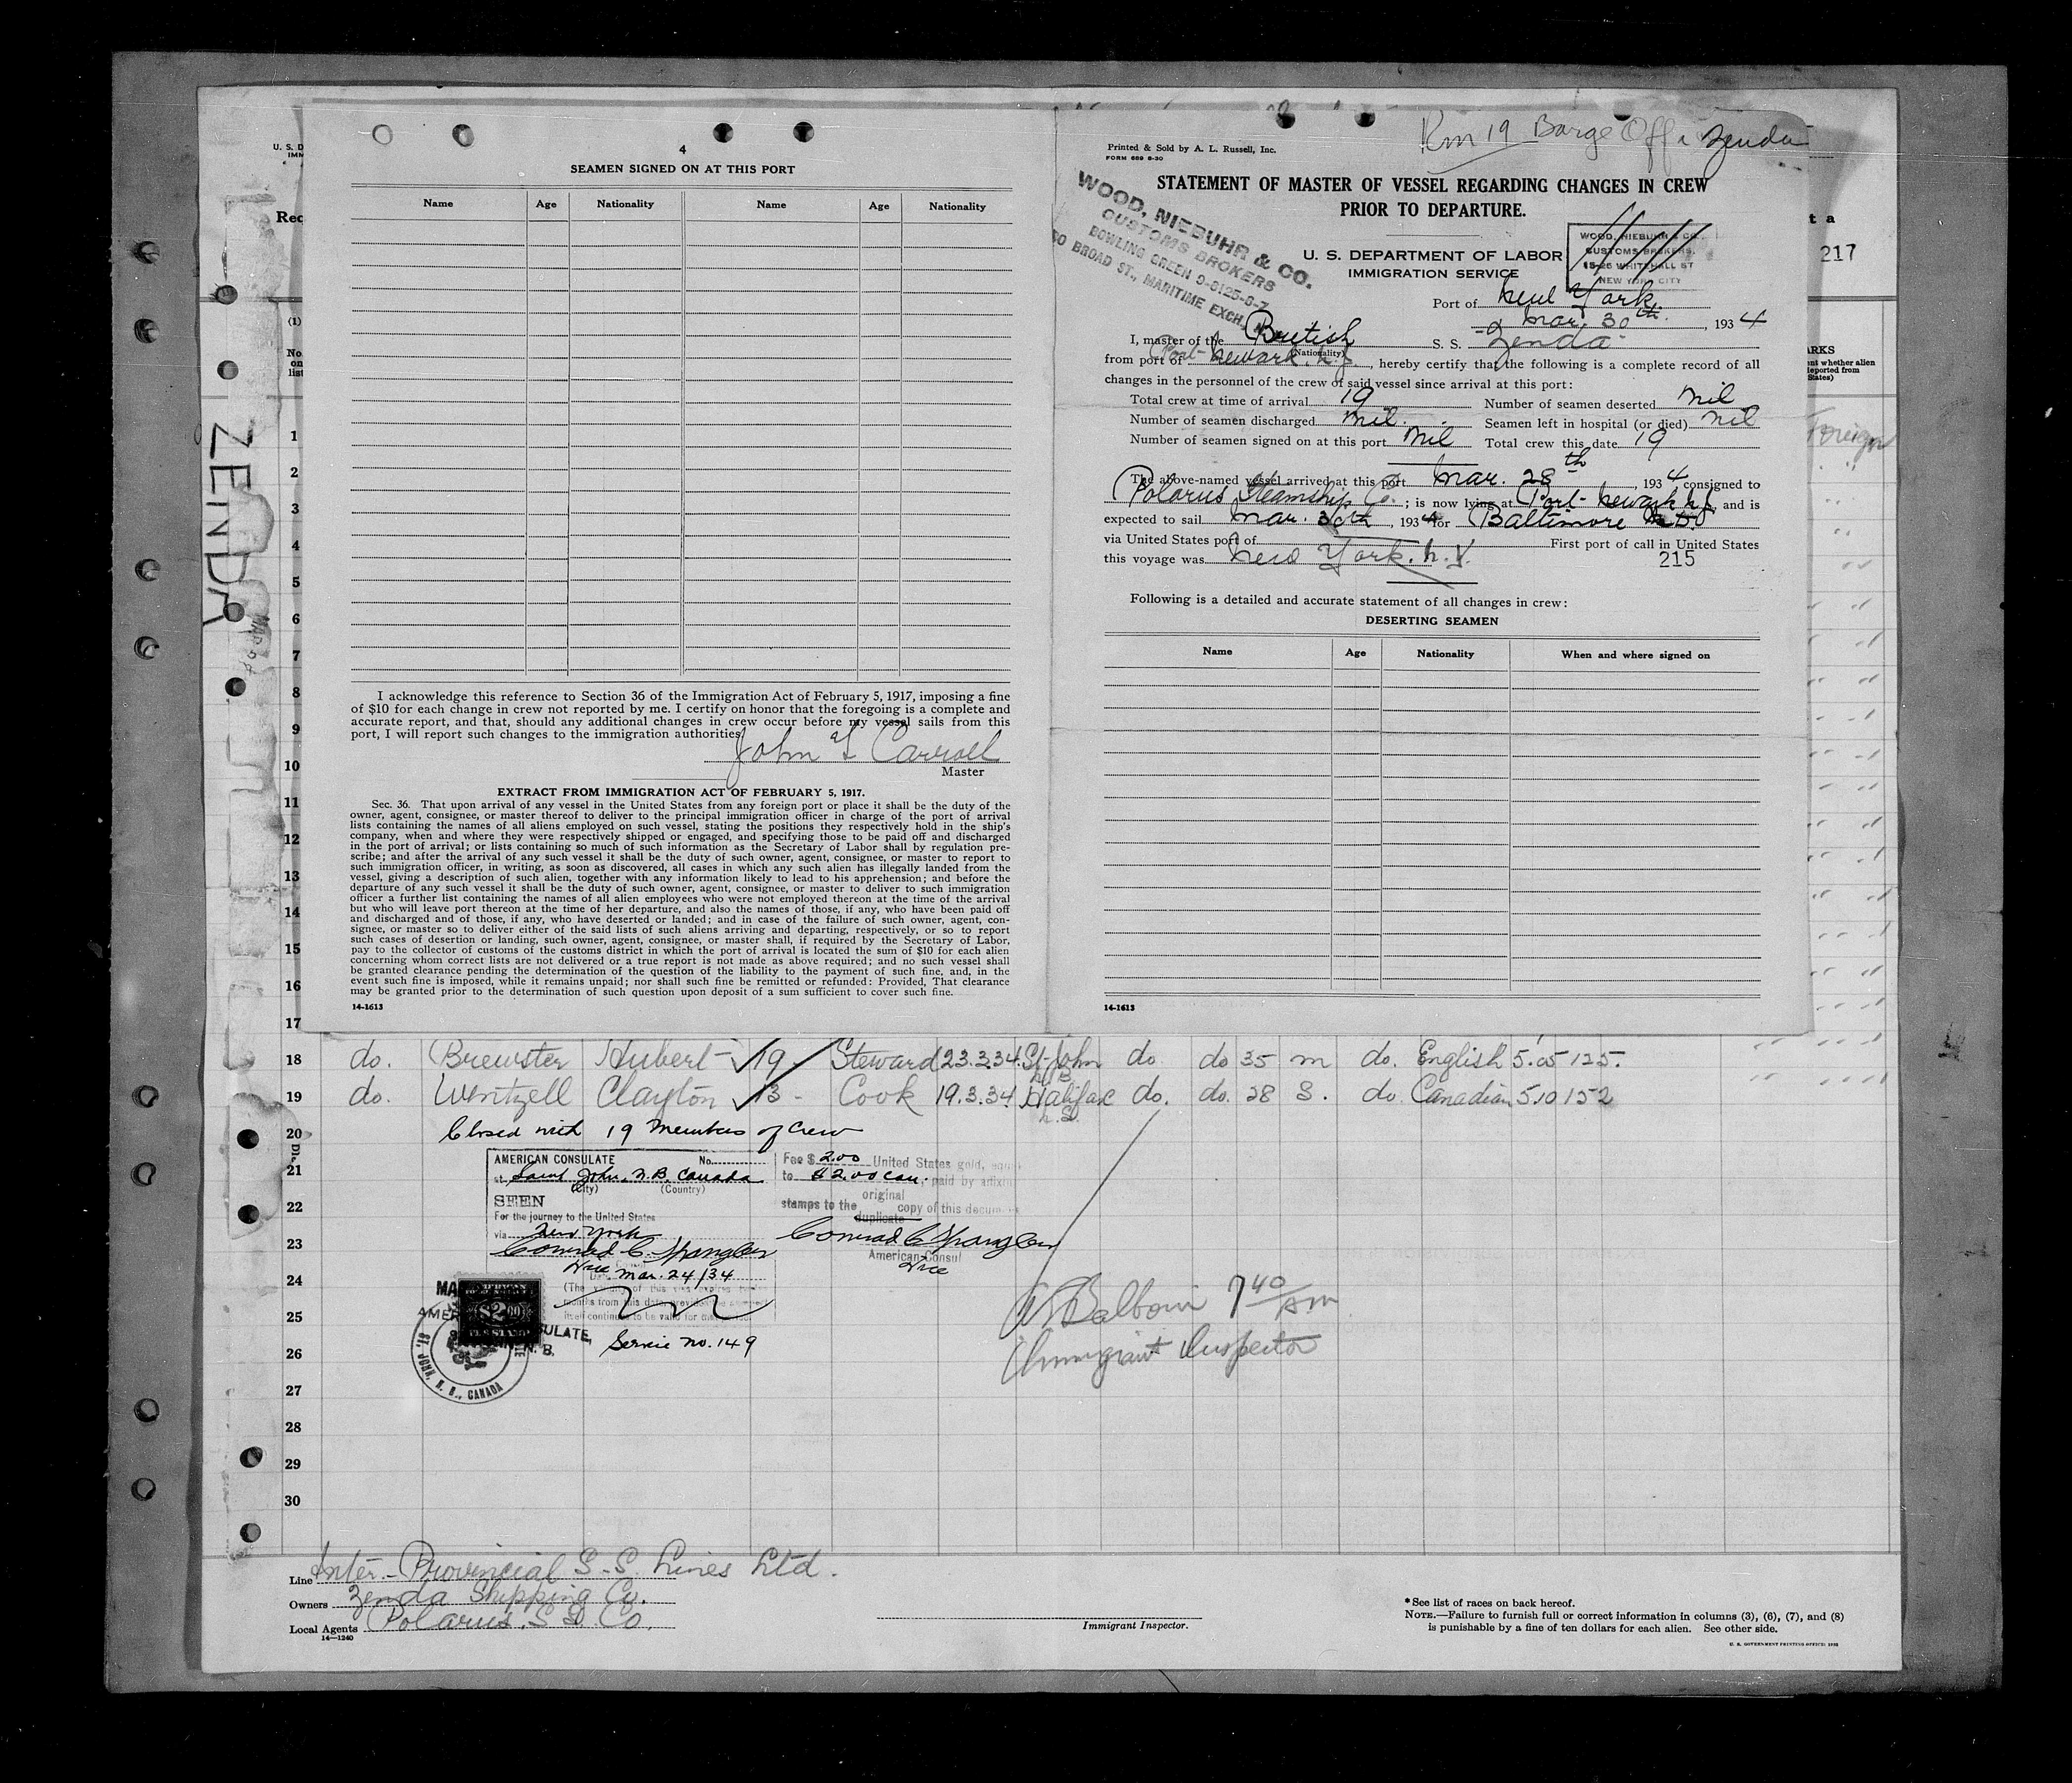 4
SEAMEN SIGNED ON AT THIS PORT
Name Age Nationality Name Age Nationality
I acknowledge this reference to Section 36 of the Immigration Act of February 5, 1917, imposing a fine
of $10 for each change in crew not reported by me. I certify on honor that the foregoing is a complete and
accurate report, and that, should any additional changes in crew occur before my vessel sails from this
port, I will report such changes to the immigration authorities.
John Carroll
Master
EXTRACT FROM IMMIGRATION ACT OF FEBRUARY 5, 1917.
Sec. 36. That upon arrival of any vessel in the United States from any foreign port or place it shall be the duty of the
owner, agent, consignee, or master thereof to deliver to the principal immigration officer in charge of the port of arrival
lists containing the names of all aliens employed on such vessel, stating the positions they respectively hold in the ship's
company, when and where they were respectively shipped or engaged, and specifying those to be paid off and discharged
in the port of arrival; or lists containing so much of such information as the Secretary of Labor shall by regulation pre-
scribe; and after the arrival of any such vessel it shall be the duty of such owner, agent, consignee, or master to report to
such immigration officer, in writing, as soon as discovered, all cases in which any such alien has illegally landed from the
vessel, giving a description of such alien, together with any information likely to lead to his apprehension; and before the
departure of any such vessel it shall be the duty of such owner, agent, consignee, or master to deliver to such immigration
officer a further list containing the names of all alien employees who were not employed thereon at the time of the arrival
but who will leave port thereon at the time of her departure, and also the names of those, if any, who have been paid off
and discharged and of those, if any, who have deserted or landed; and in case of the failure of such owner, agent, con-
signee, or master so to deliver either of the said lists of such aliens arriving and departing, respectively, or so to report
such cases of desertion or landing, such owner, agent, consignee, or master shall, if required by the Secretary of Labor,
pay to the collector of customs of the customs district in which the port of arrival is located the sum of $10 for each alien
concerning whom correct lists are not delivered or a true report is not made as above required; and no such vessel shall
be granted clearance pending the determination of the question of the liability to the payment of such fine, and, in the
event such fine is imposed, while it remains unpaid; nor shall such fine be remitted or refunded: Provided, That clearance
may be granted prior to the determination of such question upon deposit of a sum sufficient to cover such fine.
14-1613
Barge Zenda
Printed & Sold by A. L. Russell, Inc.
FORM 689 6-30
STATEMENT OF MASTER OF VESSEL REGARDING CHANGES IN CREW
PRIOR TO DEPARTURE.
WOOD, NIEBUHR & CO.
CUSTOMS BROKERS
BOWLING GREEN 9-8125-6-7
BROAD ST., MARITIME EXCH.
U. S. DEPARTMENT OF LABOR
IMMIGRATION SERVICE
WOOD, NIEBUHR & CO.
CUSTOMS BROKERS.
WHITEHALL ST
NEW YORK CITY
Port of New York
Mar. 30th, 1934
I, master of the British S. S. Zenda
(Nationality)
from port of Port-Newark. N.J., hereby certify that the following is a complete record of all
changes in the personnel of the crew of said vessel since arrival at this port:
Total crew at time of arrival 19 Number of seamen deserted nil
Number of seamen discharged nil. Seamen left in hospital (or died) nil
Number of seamen signed on at this port nil Total crew this date 19
The above-named vessel arrived at this port Mar. 28th, 1934 consigned to
Polarus Steamship Co.; is now lying at Port-Newark N.J. and is
expected to sail Mar. 30th, 1934 for Baltimore Md.
via United States port of First port of call in United States
this voyage was New York. N.Y. 215
Following is a detailed and accurate statement of all changes in crew:
DESERTING SEAMEN
Name Age Nationality When and where signed on
14-1613
217
ZENDA
Foreign
1
2
3
4
5
6
7
8
9
10
11
12
13
14
15
16
17
18 do. Brewster Hubert 19 - Steward 23.3.34. St-John N.B. do do 35 m do. English 5.05 125.
19 do. Wentzell Clayton 13 - Cook 19.3.34 Halifax N.S. do. do. 28 S. do. Canadian 5.10 152
20 Closed with 19 Members of Crew
21
22
23
24
25
26
27
28
29
30
AMERICAN CONSULATE No.
at Saint John, N.B. Canada
(City) (Country)
SEEN
For the journey to the United States
via New York
Conrad C. Spangler
Vice
Mar. 24/34
Service No. 149
Fee $ 2.00 United States gold,
to $2.00 can. paid by
original
stamps to the duplicate copy of this
Conrad C Spangler
American Consul
Vice
ST. JOHN, N. B., CANADA
7 40 AM
Immigrant Inspector
Line Inter-Provincial S-S. Lines Ltd.
Owners Zenda Shipping Co.
Local Agents Polarus. S S. Co.
14—1240
Immigrant Inspector.
*See list of races on back hereof.
NOTE.—Failure to furnish full or correct information in columns (3), (6), (7), and (8)
is punishable by a fine of ten dollars for each alien. See other side.
U. S. GOVERNMENT PRINTING OFFICE: 1932